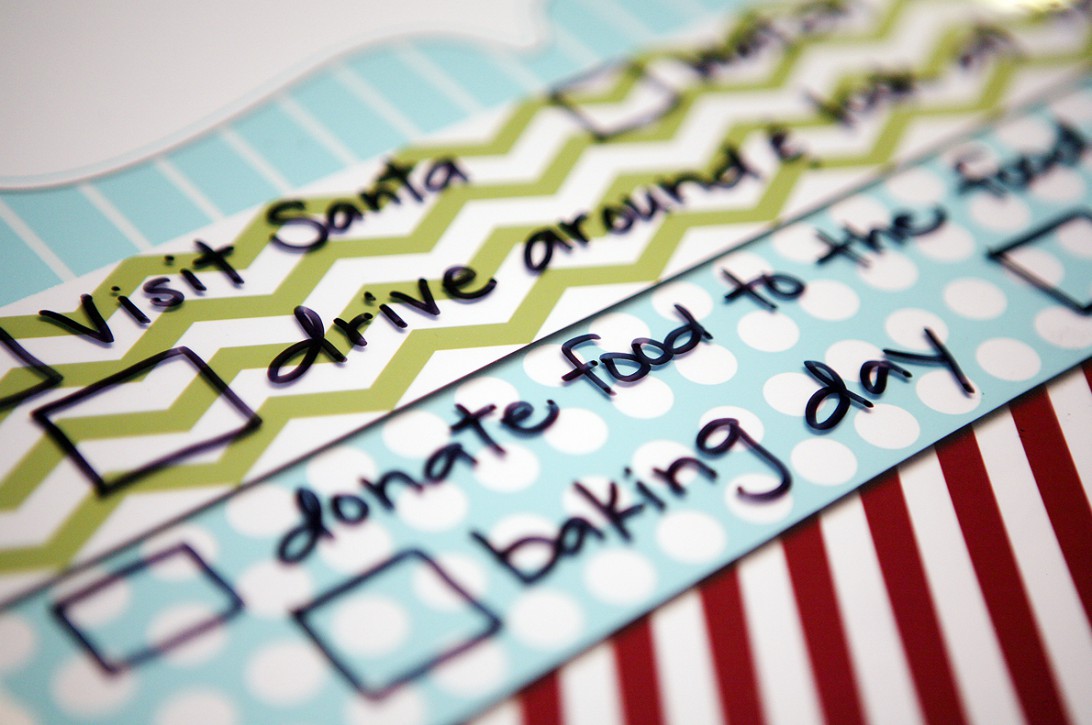 Visit Santa
drive around &
donate food to the food
baking day